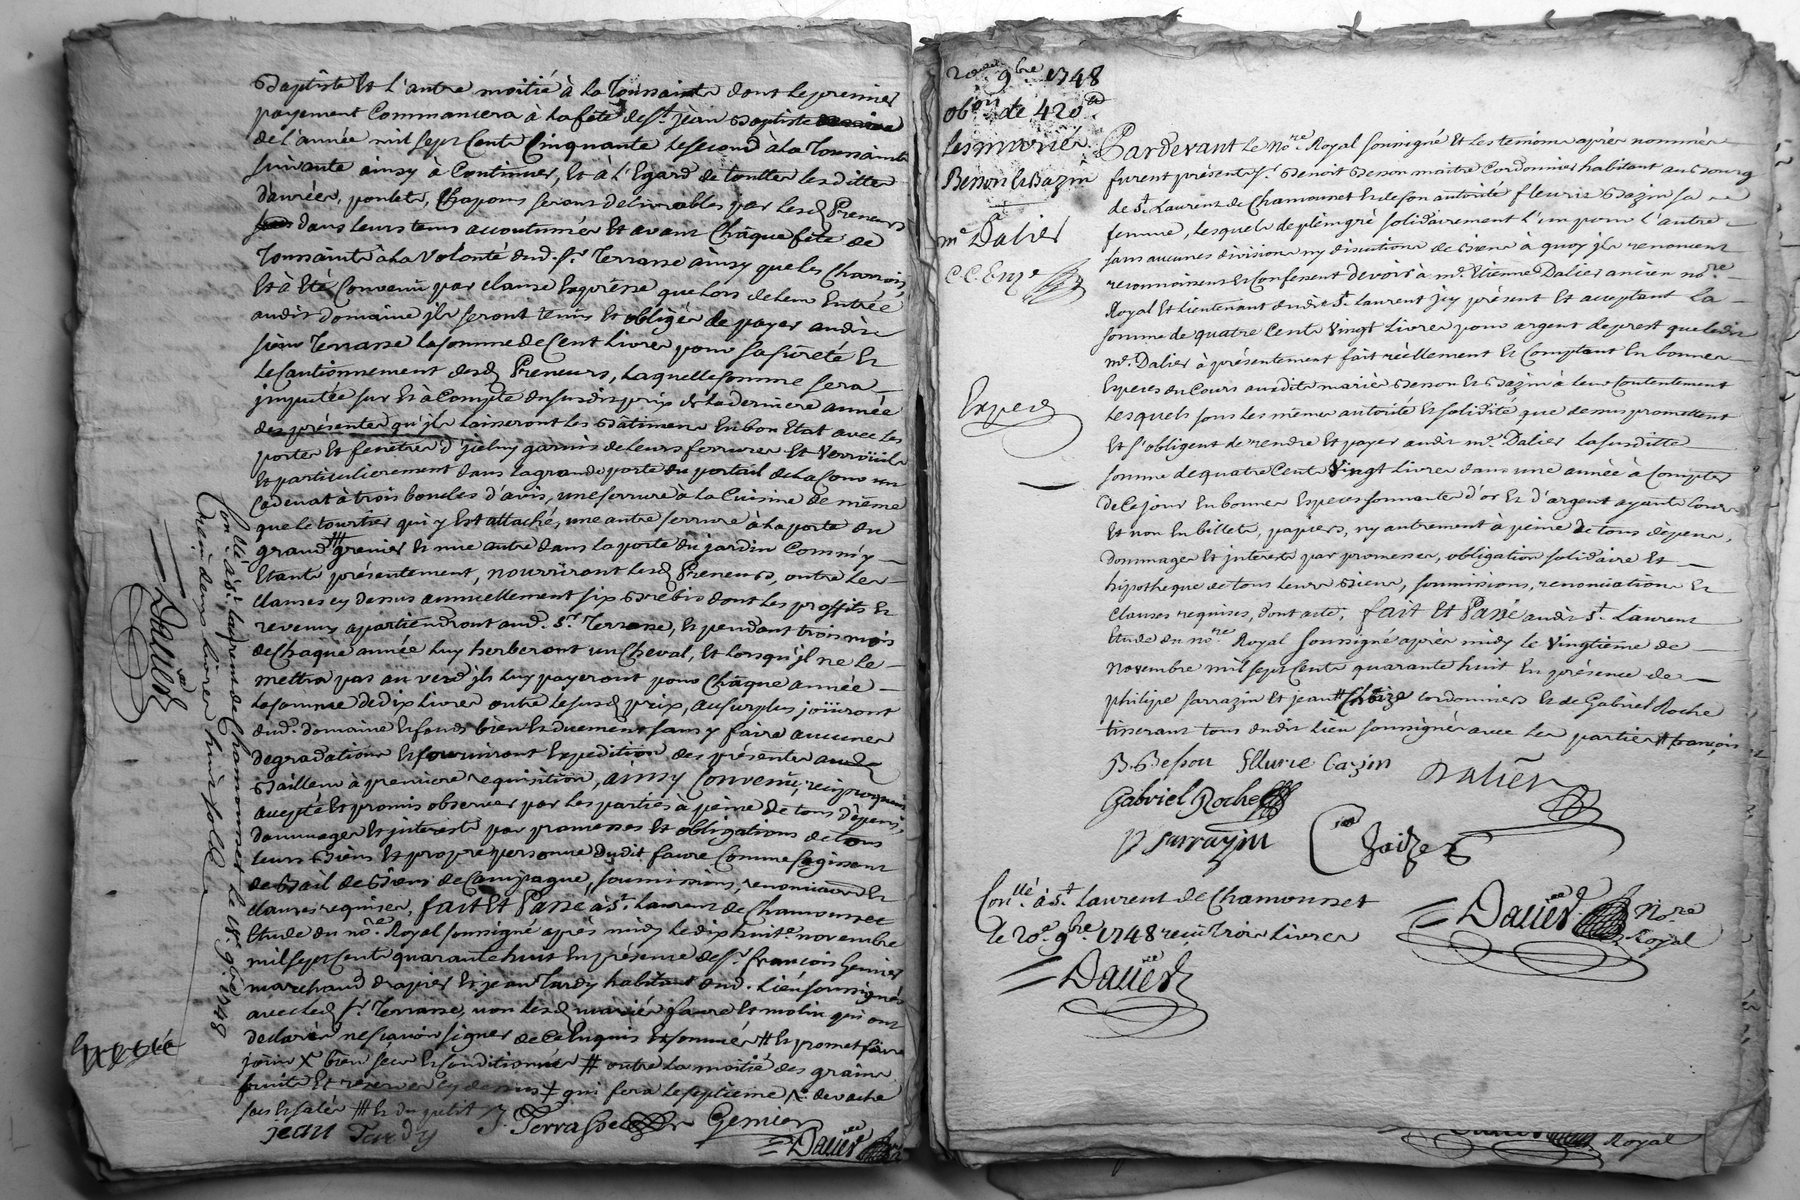 Baptiste Et l'autre moitié à la Toussainte dont le premier
payement Commancera à la fête de St. jean Baptiste
de l'année mil sept Cents Cinquante le second à la Toussainte
suivante ainsy à Continuer, Et à l'Egard de touttes les dittes
danrées, poulets, Chapons seront delivrables par lesd. Preneurs
dans leurs tems accoutumés Et avant Chaque fête de
Toussainte à la Volonté dud. Sr. Terrasse ainsy que les Charrois,
Et à Eté Convenu par clause Expresse que lors de leur Entrée
audit domaine jls seront tenus Et obligés de payer audit
sieur Terrasse la somme de Cent livres pour la sûreté Et
le Cautionnement desd. Preneurs, laquelle somme sera
jmputée sur Et à Compte du susdit prix de la derniere année
des présentes qu'jls laisseront les Batimens En bon Etat avec les
portes Et fenêtres d'jceluy garnis de leurs ferrures Et Verroüils
Et particulierement dans la grande porte du portail de la Cour un
Cadenat à trois boucles d'avis, une serrure à la Cuisine de même
que le tourtier qui y Est attaché, une autre serrure à la porte du
grand grenier Et une autre dans la porte du jardin Comme y
Etants présentement, nourriront lesd. Preneurs, outre les
clauses cy dessus annuellement six Brebis dont les proffits Et
revenus apartiendront aud. Sr. Terrasse, Et pendant trois mois
de Chaque année luy herberont un Cheval, Et lorsqu'jl ne le
mettra pas au verd jls luy payeront pour Chaque année
la somme de dix livres outre le susd. prix, au surplus joüiront
dud. domaine Et fonds bien Et duement sans y faire aucunes
degradations Et fourniront Expedition des présentes aud.
Bailleur à premiere requisition, ainsy Convenu, reciproquement
accepté Et promis observer par les parties à peine de tous dépens,
dommages Et jnterests par promesses Et obligations de tous
leurs Biens Et propre personne dudit faure Comme s'agissant
de Bail de Biens de Campagne, soumissions, renonciations Et
clauses requises, fait Et Passé à St. Laurent de Chamousset
Etude du nore. Royal soussigné après midy le dix huite. novembre
mil sept Cents quarante huit En présence de Sr. françois Genier
marchand drapier Et jean Tardy habitant dud. lieu soussignés
avec led. Sr. Terrasse, non lesd. mariés faure Et molin qui ont
declarés ne sçavoir signer de Ce Enquis Et sommés # Et promet faire
jouir X bien seur Et Conditionnés # outre la moitié des grains
fruits Et réserves cy dessus ‡ qui sera le septieme X de vache
sec Et salés ### Et du petit
jean Tardy J. Terrasse Genier
Dalier
Conllé. à St. Laurent de Chamousset le 18e. 9bre. 1748
reçu deux livres huit sols
Dalier
Expedié
20e. 9bre 1748
obon de 420 ll
les mariés
Besson Et Bazin
à
me. Dalier
C. C. Enz.e
Exped.
Pardevant le Nore. Royal soussigné Et les temoins après nommés
furent présents Sr. Benoit Besson maitre Cordonnier habitant au Bourg
de St. Laurent de Chamousset Et de son autorité fleurie Bazin sa
femme, lesquels de plein gré solidairement l'un pour l'autre
sans aucunes divisions ny discutions de Biens à quoy jls renoncent
reconnoissent Et Confessent devoir à me. Etienne Dalier ancien nore.
Royal Et Lieutenant dudit St. Laurent jcy présent Et acceptant la
somme de quatre Cents Vingt livres pour argent de prest que ledit
me. Dalier à présentement fait réellement Et Comptant En bonnes
Especes du Cours auxdits mariés Besson Et Bazin à leur Contentement
lesquels sous les mêmes autorité Et solidité que dessus promettent
Et s'obligent de rendre Et payer audit me. Dalier la susditte
somme de quatre Cents Vingt livres dans une année à Compter
de Ce jour En bonnes Especes sonnantes d'or Et d'argent ayants Cours
Et non En billets, papiers, ny autrement à peine de tous dépens,
dommages Et jnterests par promesses, obligation solidaire Et
hipotheque de tous leurs Biens, soumissions, renonciations Et
clauses requises, dont acte, fait Et Passé audit St. Laurent
Etude du nore. Royal soussigné après midy le vingtieme de
novembre mil sept Cents quarante huit En présence de
philipe sarrazin Et jean # Choize Cordonniers Et de Gabriel Roche
tisserant tous dudit lieu soussignés avec les parties # françois
B. Besson flurie bazin Dalier
Gabriel Roche
P sarrazin Choize
Conllé. à St. Laurent de Chamousset
le 20e. 9bre. 1748 reçu Trois livres
Dalier
Dalier Nore Royal
Royal